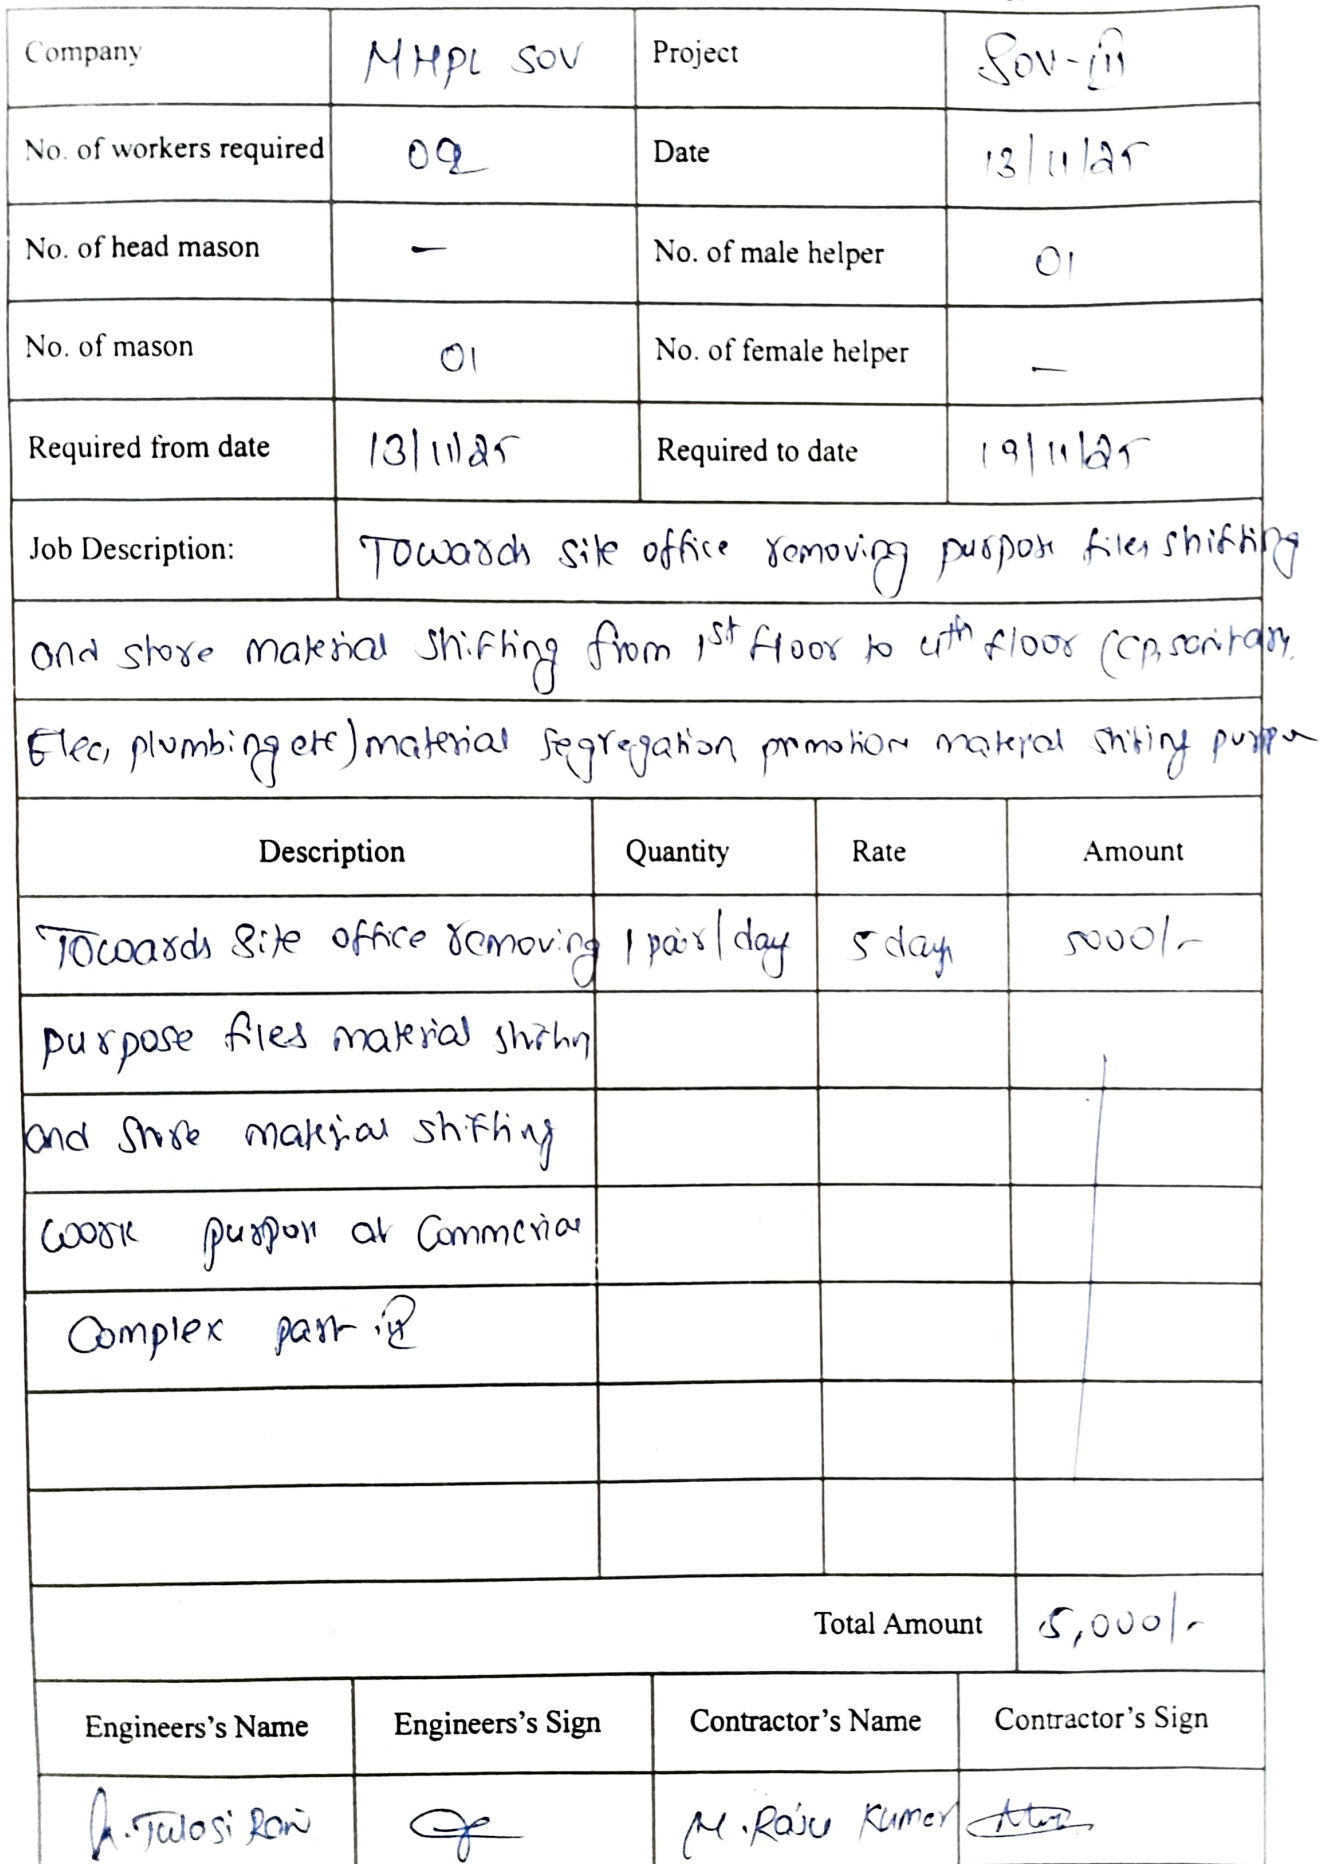 Company MHPL SOV Project SOV-III
No. of workers required 02 Date 13/11/25
No. of head mason — No. of male helper 01
No. of mason 01 No. of female helper —
Required from date 13/11/25 Required to date 19/11/25
Job Description: Towards site office removing purpose files shifting
and store material shifting from 1st floor to 4th floor (CP, sanitary,
Elec, plumbing etc) material segregation promotion material shiting purpose
Description Quantity Rate Amount
Towards Site office removing 1 pair/day 5 days 5000/-
purpose files material
and store material shifting
work purpose at Commerial
Complex part
Total Amount 5,000/-
Engineers's Name Engineers's Sign Contractor's Name Contractor's Sign
Tulasi Rani M. Raju Kumar